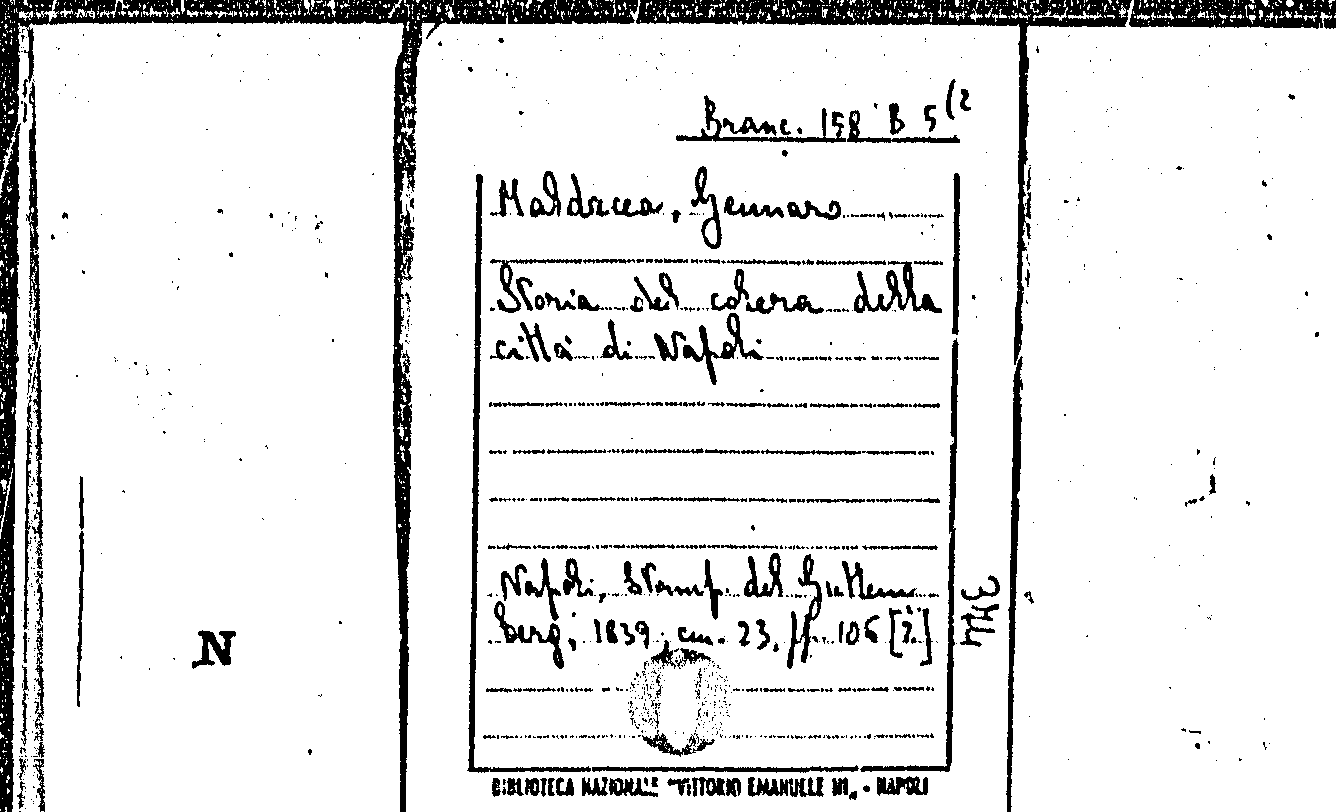 Branc. 158 B 5 (2
Maldacea, Gennaro
Storia del colera della
città di Napoli
Napoli, Stamp. del Guttem
berg, 1839, cm. 23, pp. 106 [2]
344
N
BIBLIOTECA NAZIONALE "VITTORIO EMANUELE III„ - NAPOLI